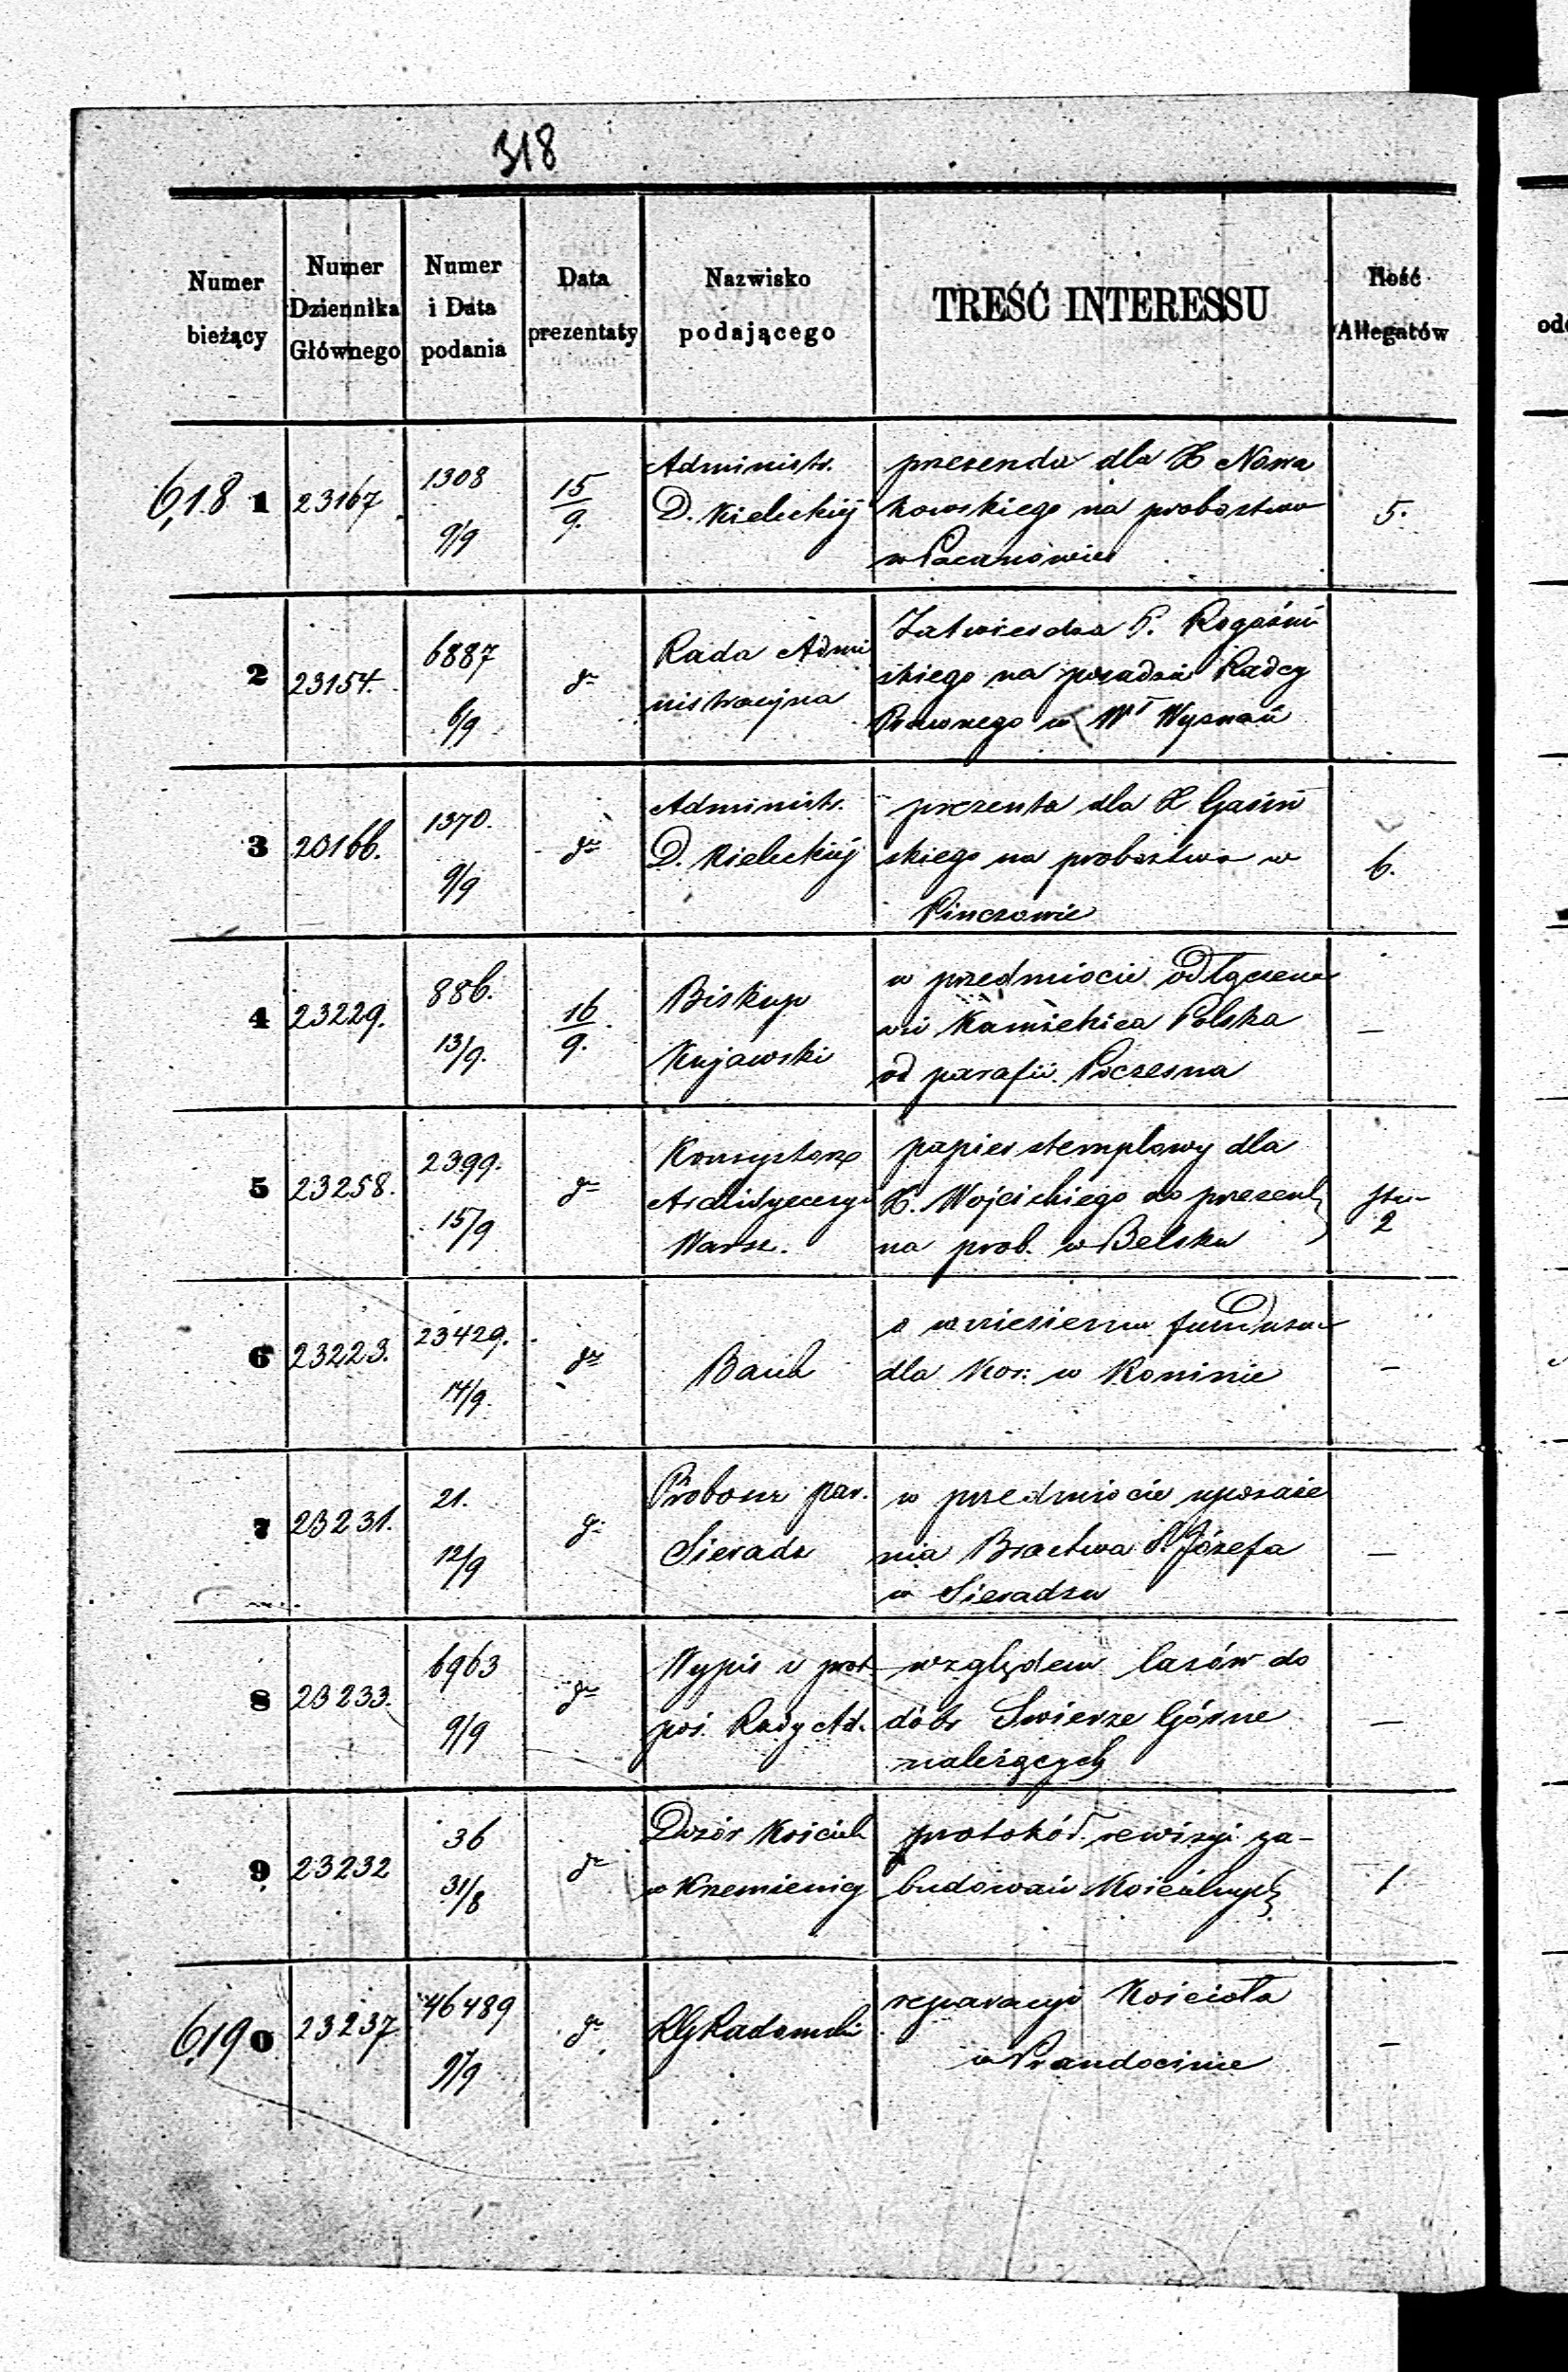 318
Numer bieżący | Numer Dziennika Głównego | Numer i Data podania | Data prezentaty | Nazwisko podającego | TREŚĆ INTERESSU | Ilość Allegatów
618 1 | 23167 | 1308 9/9 | 15/9. | Administr. | prezenda dla X Nowa
D. Kieleckiéj | kowskiego na probostwo | 5.
w Pacanowie
2 | 23154. | 6887 6/9 | do | Rada Admi | Zatwierdza P. Rogoziń
nistracyjna | skiego na posadzie Radcy
Prawnego w Wł Wyznań
3 | 20166. | 1370. 9/9 | do | Administr. | prezenta dla X Gasiń
D. Kieleckiéj | skiego na probostwo w | 6.
Pinczowie
4 | 23229. | 886. 13/9. | 16/9. | Biskup | w przedmiocie odłączenia
Kujawski | wsi Kamienica Polska | —
od parafii Poczesna
5 | 23258. | 2399. 15/9 | do | Konsystorz | papier stemplowy dla
Archidyecezyi | X. Wojcickiego do prezenty | 2
Warsz. | na prob. w Belsku
6 | 23223. | 23429. 14/9. | do | Bank | o wniesieniu funduszu
dla Koś: w Koninie | —
7 | 23231. | 21. 12/9 | do | Proboszcz par. | w przedmiocie uposaże
Sieradz | nia Bractwa Ś. Józefa | —
w Sieradzu
8 | 23233. | 6963 9/9 | do | Wypis z prot. | względem lasów do
pos. Rady Ad. | dóbr Swierze Górne | —
należących
9 | 23232 | 36 31/8 | do | Dozór Kościel. | protokół rewizyi za-
w Krzemienicy | budowań Kościelnych | 1
619 0 | 23237 | 46489 9/9 | do | RG Radomski | reparacyi Kościoła
w Prandocinie | —